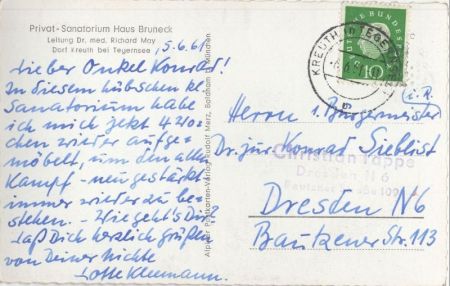 Privat-Sanatorium Haus Bruneck
Leitung Dr. med. Richard May
Dorf Kreuth bei Tegernsee
5.6.61
Lieber Onkel Konrad!
In diesem hübschen kl.
Sanatorium habe
ich mich jetzt 4 Wo-
chen wieder aufge-
möbelt, um den alten
Kampf – neu gestärkt
immer wieder zu be-
stehen. – Wie geht's Dir?
Laß Dich herzlich grüßen
von Deiner Nichte
Lotte Kleemann.
Alpiner Postkarten-Verlag Rudolf Merz, Baldham b. München
DEUTSCHE BUNDESPOST
10
KREUTH
i.R.
Herrn 1. Bürgermeister
Dr. jur. Konrad Sieblist
Christian Tappe
Dresden N 6
Bautzner Straße 109
Dresden N6
Bautzener Str. 113